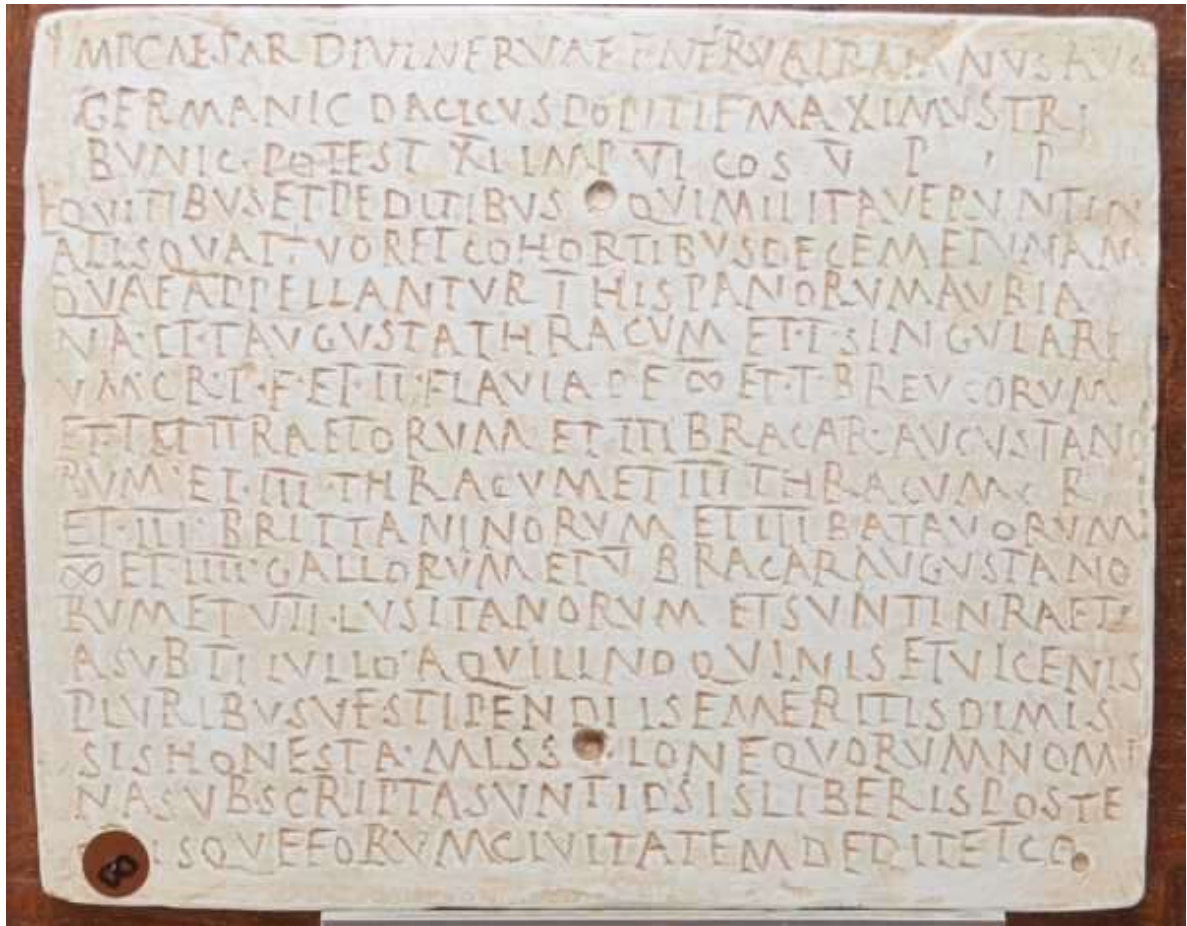 IMP CAESAR DIVI NERVAE F NERVA TRAIANVS AVG
GERMANIC DACICVS PONTIF MAXIMVS TRI
BVNIC·POTEST XI IMP VI COS V P P
EQVITIBVS ET PEDITIBVS QVI MILITAVERVNT IN
ALIS QVATTVOR ET COHORTIBVS DECEM ET VNAM
QVAE APPELLANTVR I HISPANORVM AVRIA
NA·ET·I AVGVSTA THRACVM ET·I·SINGVLARI
VM·C R·P·F·ET·II·FLAVIA P F ∞ ET·I·BREVCORVM
ET·I ET II RAETORVM ET III BRACAR·AVGVSTANO
RVM·ET·III·THRACVM ET III THRACVM C R
ET·III·BRITTANNORVM ET IIII BATAVORVM
∞ ET IIII·GALLORVM ET V BRACARAVGVSTANO
RVM ET VII·LVSITANORVM ET SVNT IN RAETI
A SVB TI IVLIO·AQVILINO QVINIS ET VICENIS
PLVRIBVSVE STIPENDIIS EMERITIS DIMIS
SIS HONESTA·MISSIONE QVORVM NOMI
NA SVBSCRIPTA SVNT IPSIS LIBERIS POSTE
ISQVE EORVM CIVITATEM DEDIT ET CO
60